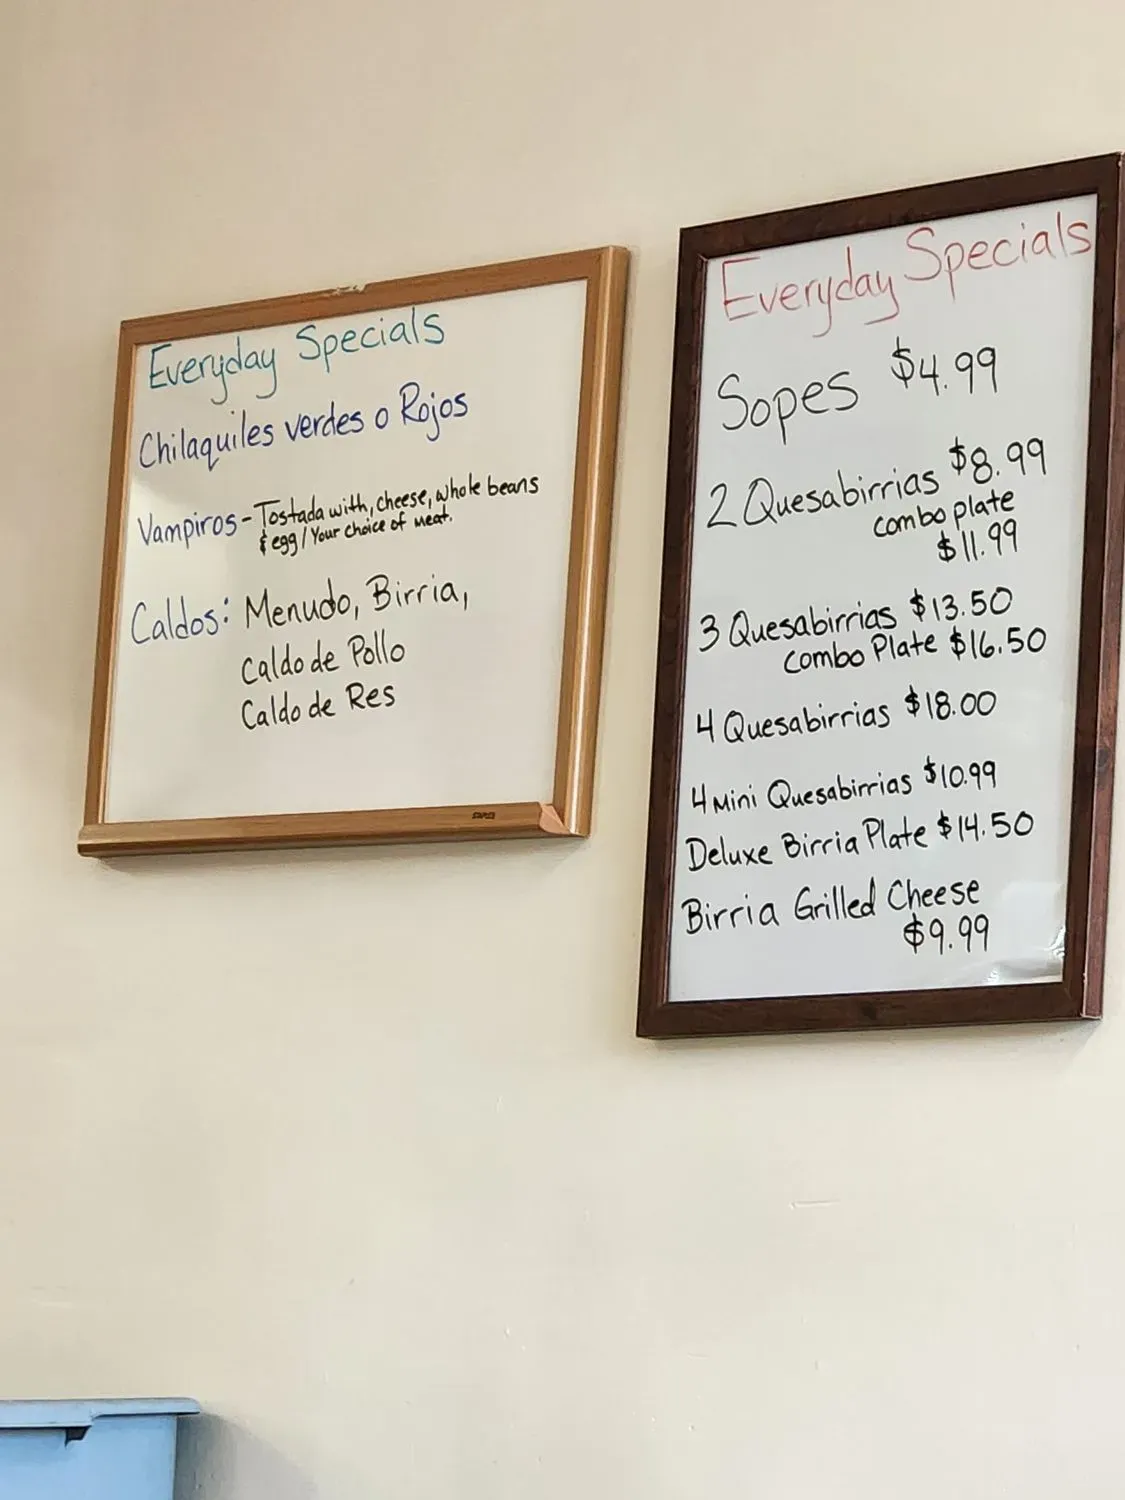 Everyday Specials
Chilaquiles verdes o Rojos
Vampiros - Tostada with, cheese, whole beans
& egg / Your choice of meat.
Caldos: Menudo, Birria,
Caldo de Pollo
Caldo de Res
STAPLES
Everyday Specials
Sopes $4.99
2 Quesabirrias $8.99
combo plate
$11.99
3 Quesabirrias $13.50
combo Plate $16.50
4 Quesabirrias $18.00
4 Mini Quesabirrias $10.99
Deluxe Birria Plate $14.50
Birria Grilled Cheese
$9.99